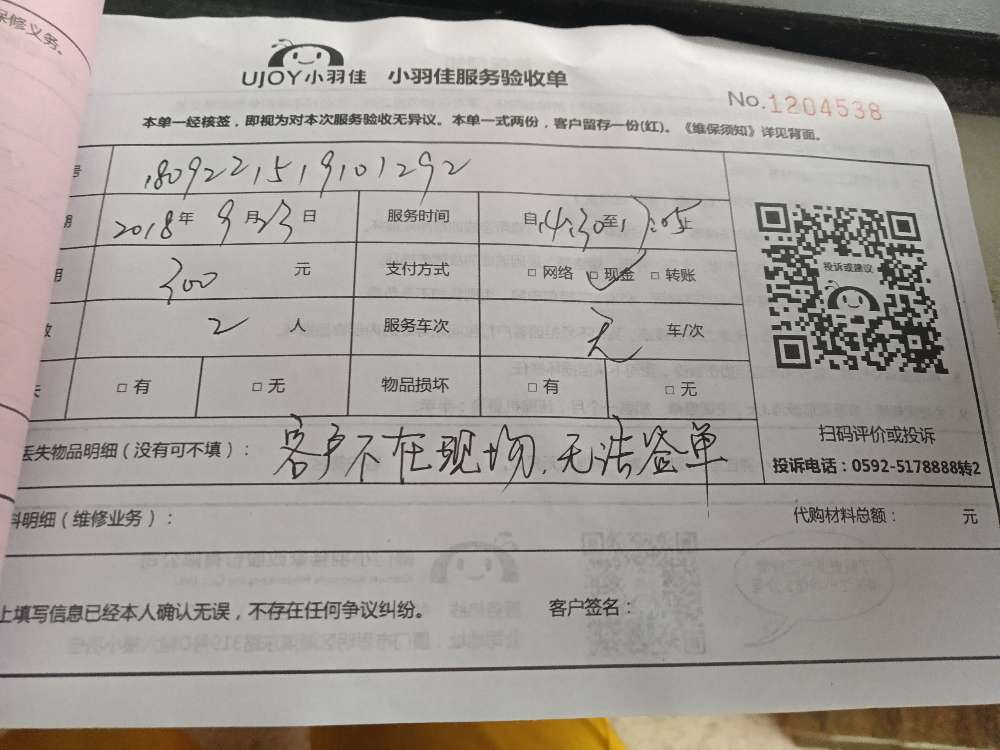 保修义务。
UJOY小羽佳 小羽佳服务验收单
No.1204538
本单一经核签，即视为对本次服务验收无异议。本单一式两份，客户留存一份(红)。《维保须知》详见背面。
号 1809221519101292
期 2018年9月23日 服务时间 自14:30至17:05止
用 300元 支付方式 □网络 □现金 □转账
数 2人 服务车次 无 车/次
失 □有 □无 物品损坏 □有 □无
投诉或建议
丢失物品明细（没有可不填）： 客户不在现场，无法签单
扫码评价或投诉
投诉电话：0592-5178888转2
料明细（维修业务）： 代购材料总额： 元
上填写信息已经本人确认无误，不存在任何争议纠纷。 客户签名：